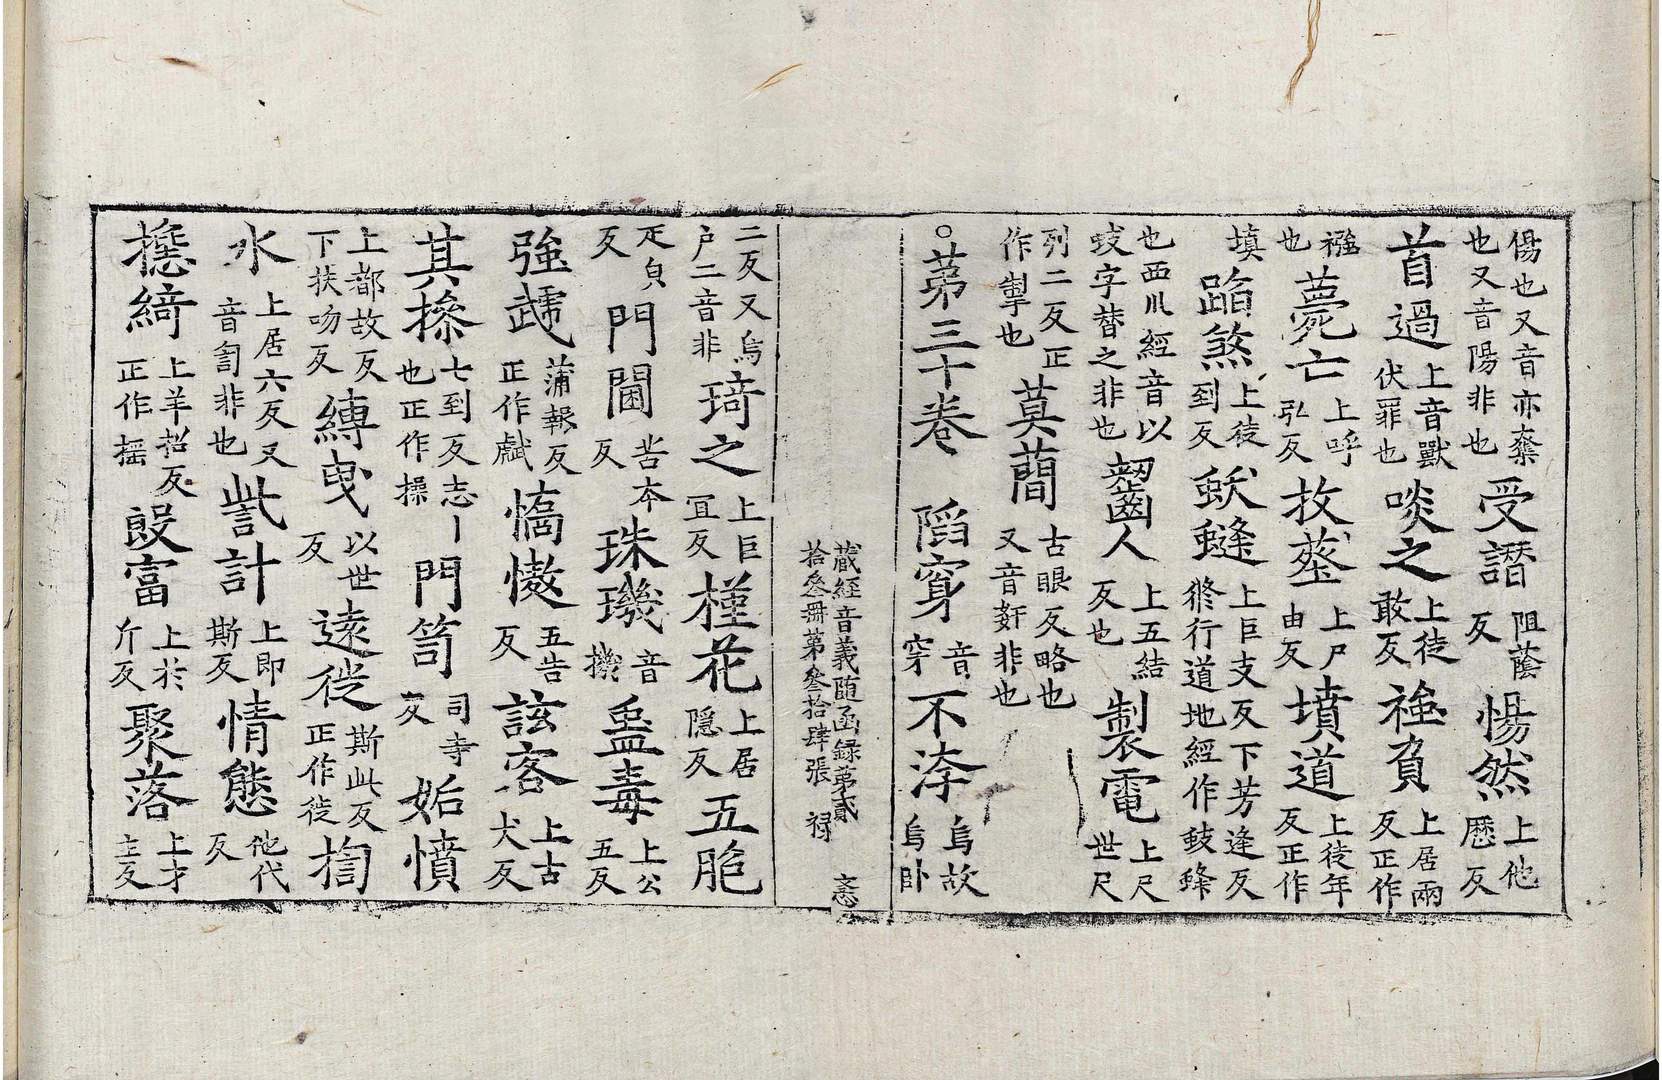 傷也又音亦案也又音陽非也受譛阻蔭反惕然上他歷反
首過上音獸伏罪也啖之上徒敢反襁負上居兩反正作
襁也薨亡上呼弘反敊葬上尸由反墳道上徒年反正作
填蹈煞上徒到反蚑蜂上巨支反下芳逢反修行道地經作蚑蜂
也西川經音以蚑字替之非也齧人上五結反也製電上尺世尺
列二反正作掣也茣蕳古眼反略也又音奸非也
○第三十卷 陷穿音穿不洿烏故烏臥
藏經音義随函録第貳
拾叄冊第叄拾肆張 禄 忞
二反又烏戶二音非琦之上巨冝反槿花上居隱反五脃
疋㒵反門閫苦本反珠璣音機蛊毒上公五反
強虣蒲報反正作虣憍慠五告反詃客上古犬反
其摻七到反志也正作操門笥司寺反妬憤
上都故反下扶吻反縳曳以世反遠徙斯此反正作徙掬
水上居六反又音訇非也訾計上即斯反情態他代反
搖綺上羊招反正作摇殷富上於斤反聚落上才主反